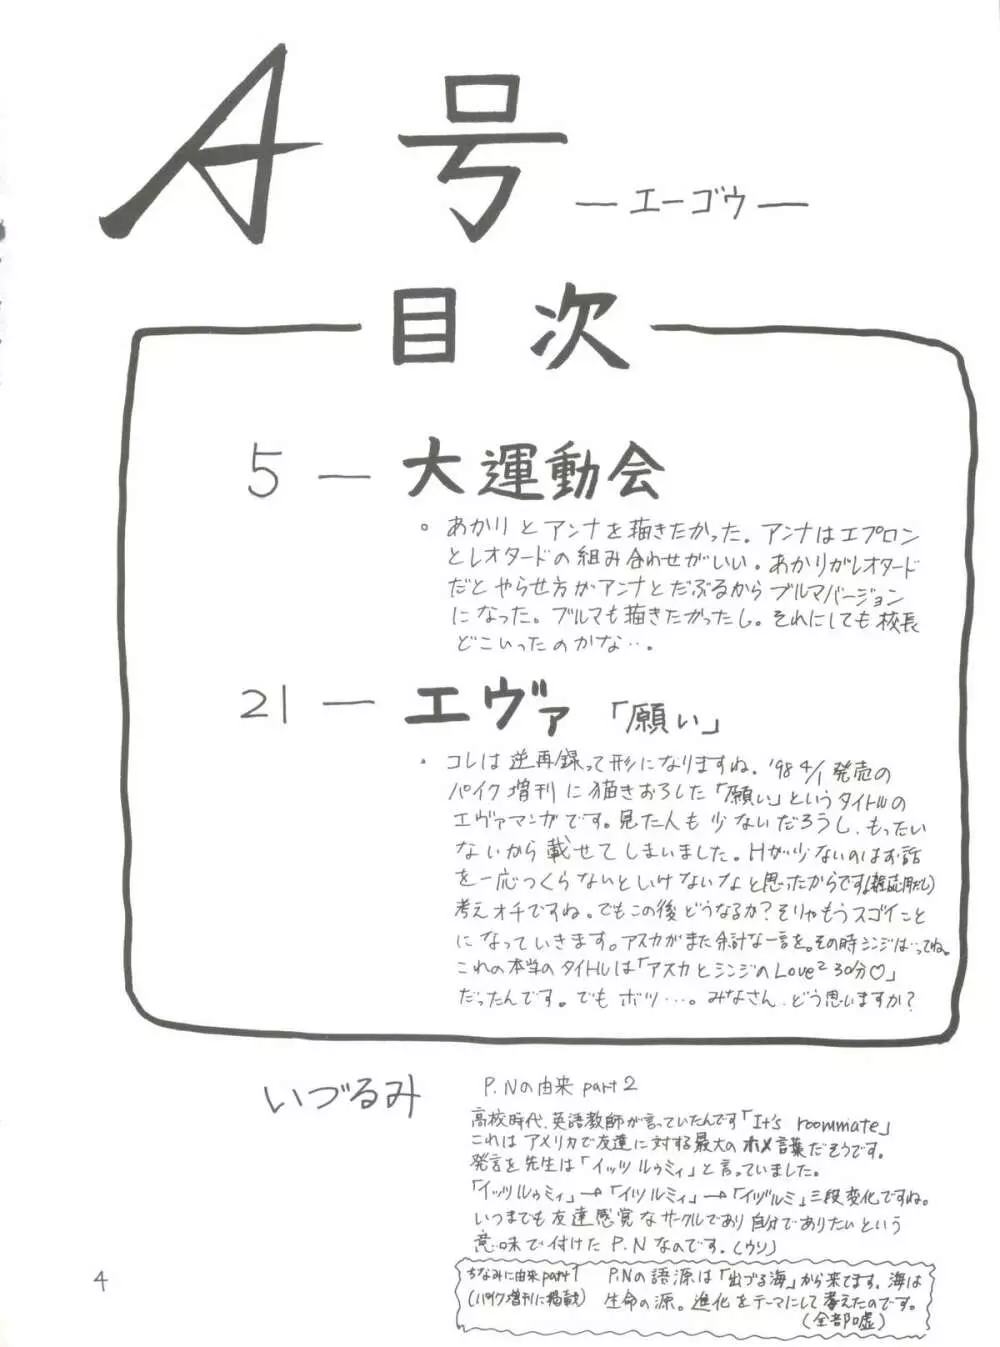 A号
—エーゴウ—
目次
5 — 大運動会
。あかりとアンナを描きたかった。アンナはエプロン
とレオタードの組み合わせがいい。あかりがレオタード
だとやらせ方がアンナとだぶるからブルマバージョン
になった。ブルマも描きたかったし。それにしても校長
どこいったのかな…。
21 — エヴァ 「願い」
・コレは逆再録って形になりますね。'98 4/1 発売の
パイク増刊に描きおろした「願い」というタイトルの
エヴァマンガです。見た人も少ないだろうし、もったい
ないから載せてしまいました。Hが少ないのはお話
を一応つくらないといけないなと思ったからです
考えオチですね。でもこの後どうなるか?そりゃもうスゴイこと
になっていきます。アスカがまた余計な一言を。その時シンジは…ってね。
これの本当のタイトルは「アスカとシンジのLove² 30分♡」
だったんです。でもボツ…。みなさん、どう思いますか?
いづるみ
P.Nの由来 part 2
高校時代、英語教師が言っていたんです「It's roommate」
これはアメリカで友達に対する最大のホメ言葉だそうです。
発言を先生は「イッツ ルゥミィ」と言っていました。
「イッツルゥミィ」→「イツルミィ」→「イヅルミ」三段変化ですね。
いつまでも友達感覚なサークルであり自分でありたいという
意味で付けたP.Nなのです。(ウソ)
ちなみに由来part1 P.Nの語源は「出づる海」から来てます。海は
(パイク増刊に掲載) 生命の源。進化をテーマにして考えたのです。
(全部嘘)
4